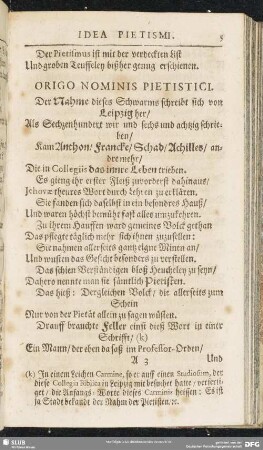 IDEA PIETISMI. 5
Der Pietismus ist mit der verdeckten List
Und groben Teuffeley bißher genug erschienen.
ORIGO NOMINIS PIETISTICI.
Der Nahme dieses Schwarms schreibt sich von
Leipzig her/
Als Sechzenhundert wir und sechs und achzig schrie-
ben/
Kam Anthon/ Francke/ Schad/ Achilles/ an-
dre mehr/
Die in Collegiis das innre Leben trieben.
Es gieng ihr erster Fleiß zuvorderst dahinaus/
Jehovæ theures Wort durch Lehren zu erklären.
Sie fanden sich daselbst in ein besondres Hauß/
Und waren höchst bemüht fast alles umzukehren.
Zu ihrem Hauffen ward gemeines Volck gethan
Das pflegte täglich mehr sich ihnen zuzusellen:
Sie nahmen allerseits gantz eigne Minen an/
Und wusten das Gesicht besonders zu verstellen.
Das schien Verständigen bloß Heucheley zu seyn/
Dahero nennte man sie sämtlich Pietisten.
Das hieß: Dergleichen Volck/ die allerseits zum
Schein
Nur von der Pietät allein zu sagen wüsten.
Drauff brauchte Feller einst dieß Wort in einer
Schrifft/ (k)
Ein Mann/ der eben da saß im Professor-Orden/
A 3 Und
(k) In einem Leichen Carmine, so er auff einen Studiosum, der
diese Collegia Biblica in Leipzig mit besuchet hatte, verferti-
get, die Anfangs-Worte dieses Carminis heissen: Es ist
ja Stadt bekandt der Nahm der Pietisten, ec.
SLUB